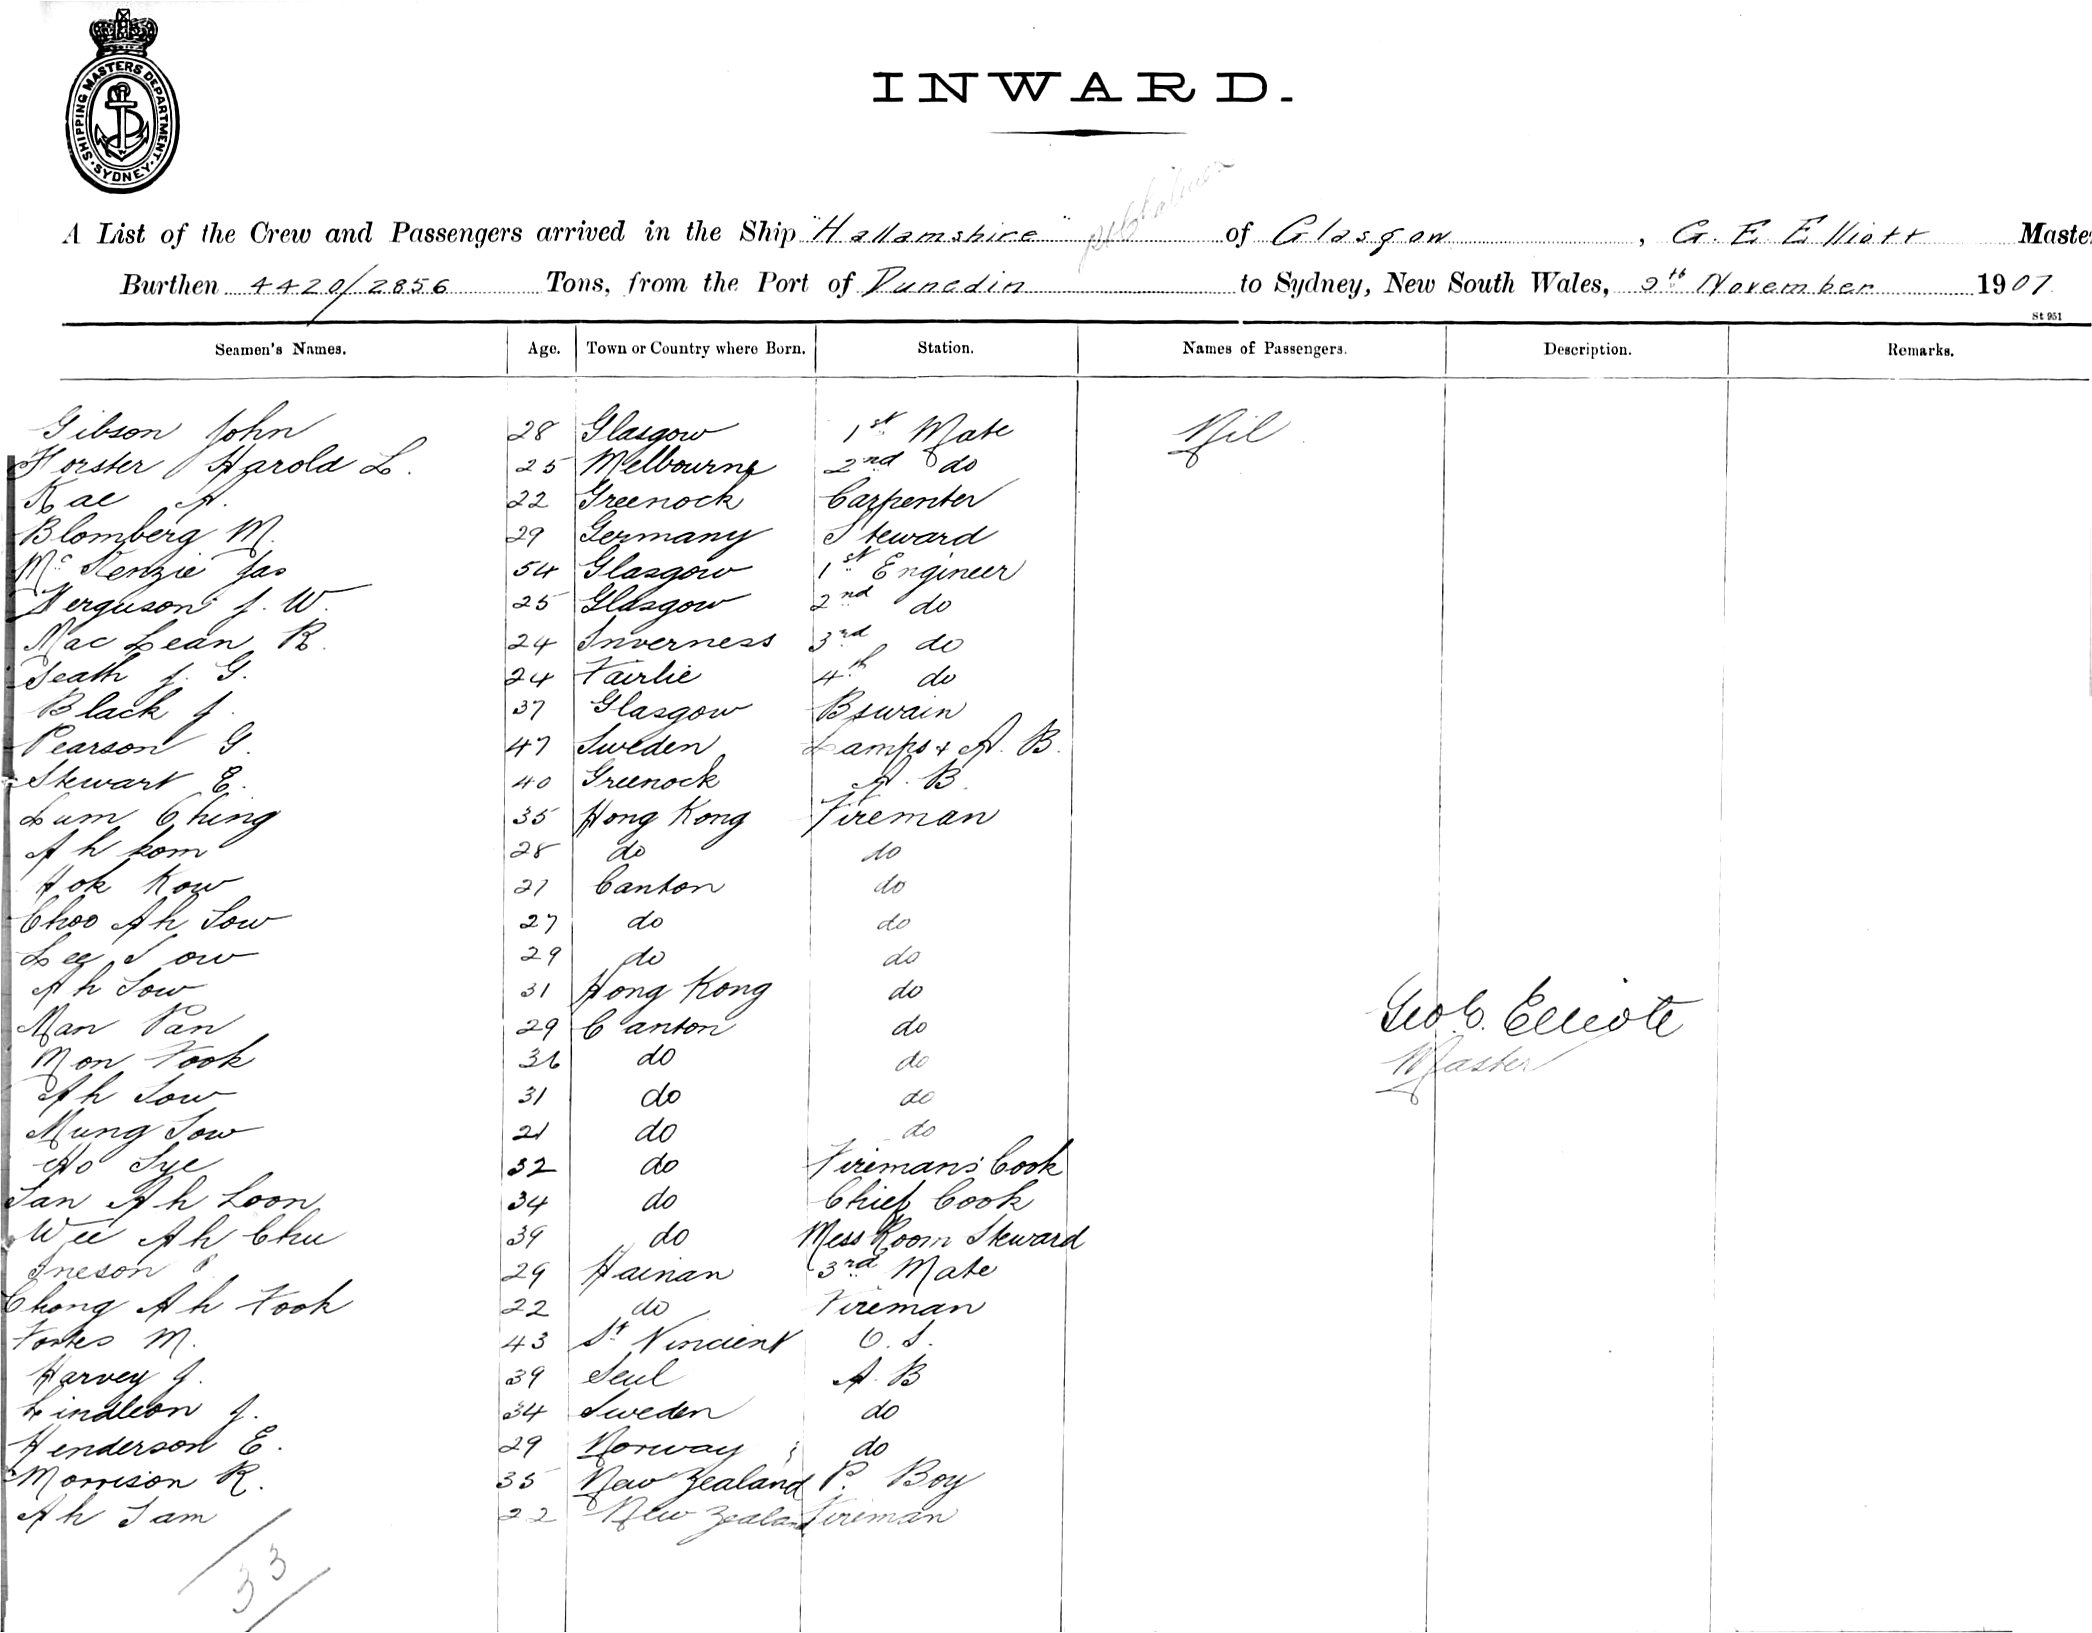 SHIPPING MASTERS DEPARTMENT · SYDNEY ·
INWARD.
A List of the Crew and Passengers arrived in the Ship "Hallamshire" of Glasgow, G. E. Elliott Master
Burthen 4420/2856 Tons, from the Port of Dunedin to Sydney, New South Wales, 9th November 1907
St 951
Seamen's Names. Age. Town or Country where Born. Station. Names of Passengers. Description. Remarks.
Gibson John 28 Glasgow 1st Mate Nil
Forster Harold L. 25 Melbourne 2nd do
Rae A. 22 Greenock Carpenter
Blomberg M. 29 Germany Steward
Mc Kenzie Jas 54 Glasgow 1st Engineer
Ferguson J. W. 25 Glasgow 2nd do
Mac Lean R. 24 Inverness 3rd do
Seath J. G. 24 Fairlie 4th do
Black J. 37 Glasgow Bswain
Pearson G. 47 Sweden Lamps + A. B.
Stewart E. 40 Greenock A. B.
Lum Ching 35 Hong Kong Fireman
Ah kom 28 do do
Hok Kow 27 Canton do
Choo Ah Sow 27 do do
Lee Sow 29 do do
Ah Sow 31 Hong Kong do
Man Pan 29 Canton do
Geo E. Elliott
Mon Fook 36 do do
Master
Ah Sow 31 do do
Mung Sow 21 do do
Ho Sye 32 do Fireman's Cook
San Ah Loon 34 do Chief Cook
Wee Ah Chu 39 do Mess Room Steward
Ineson 29 Hainan 3rd Mate
Chong Ah Fook 22 do Fireman
Fortes M. 43 St Vincient O. S.
Harvey J. 39 Seul A. B
Lindleon J. 34 Sweden do
Henderson E. 29 Norway do
Morrison R. 35 New Zealand P. Boy
Ah Sam 22 New Zealand Fireman
33